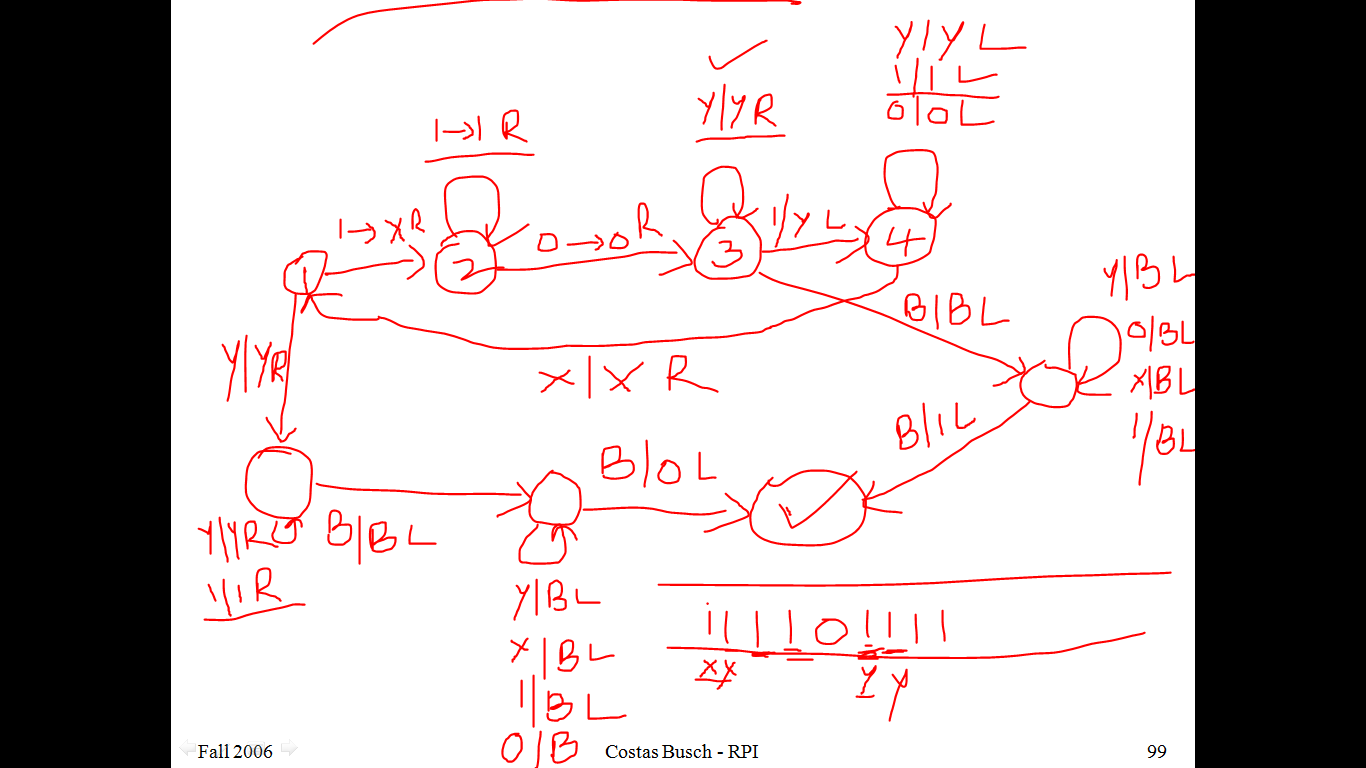 y/y L
1/1 L
0/0 L
y/y R
1→1 R
1→x R
1
2
0→0 R
3
1/y L
4
B/B L
y/B L
0/B L
x/B L
1/B L
y/y R
x/x R
B/1 L
B/0 L
y/y R
1/1 R
B/B L
y/B L
x/B L
1/B L
0/B
1 1 1 1 0 1 1 1 1
x x y y
Fall 2006
Costas Busch - RPI
99